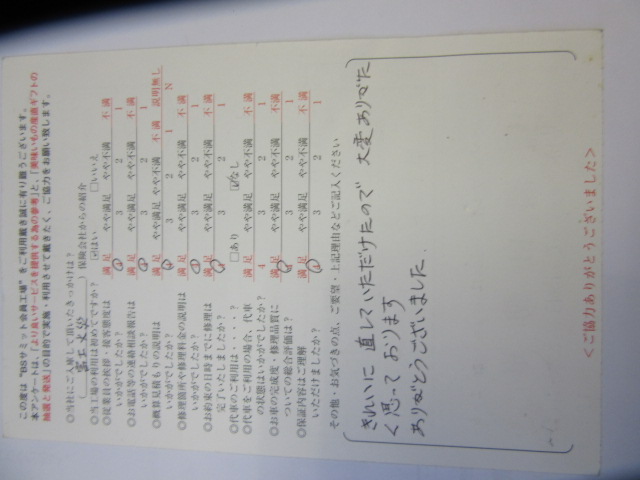 この度は "BSサミット会員工場" をご利用戴き誠に有り難うございます。
本アンケートは、「より良いサービスを提供する為の参考」と、「美味いもの産直ギフトの
抽選と発送」の目的で実施・利用させて戴きたく、ご協力をお願い致します。
○当社にご入庫して頂いたきっかけは？
( 富士火災 ) 保険会社からの紹介
○当工場の利用は初めてですか？ ☑はい □いいえ
○従業員の挨拶・接客態度は 満足 やや満足 やや不満 不満
いかがでしたか？ 4 3 2 1
○お電話等の連絡相談報告は 満足 やや満足 やや不満 不満
いかがでしたか？ 4 3 2 1
○概算見積もりの説明は 満足 やや満足 やや不満 不満 説明無し
いかがでしたか？ 4 3 2 1 N
○修理箇所や修理料金の説明は 満足 やや満足 やや不満 不満
いかがでしたか？ 4 3 2 1
○お約束の日時までに修理は 満足 やや満足 やや不満 不満
完了いたしましたか？ 4 3 2 1
○代車のご利用は・・・・？ □あり ☑なし
○代車をご利用の場合、代車 満足 やや満足 やや不満 不満
の状態はいかがでしたか？ 4 3 2 1
○お車の完成度・修理品質に 満足 やや満足 やや不満 不満
ついての総合評価は？ 4 3 2 1
○保証内容はご理解 満足 やや満足 やや不満 不満
いただけましたか？ 4 3 2 1
その他・お気づきの点、ご要望・上記理由などご記入ください
きれいに 直していただけたので 大変ありがた
く思って おります
ありがとうございました.
＜ご協力ありがとうございました＞